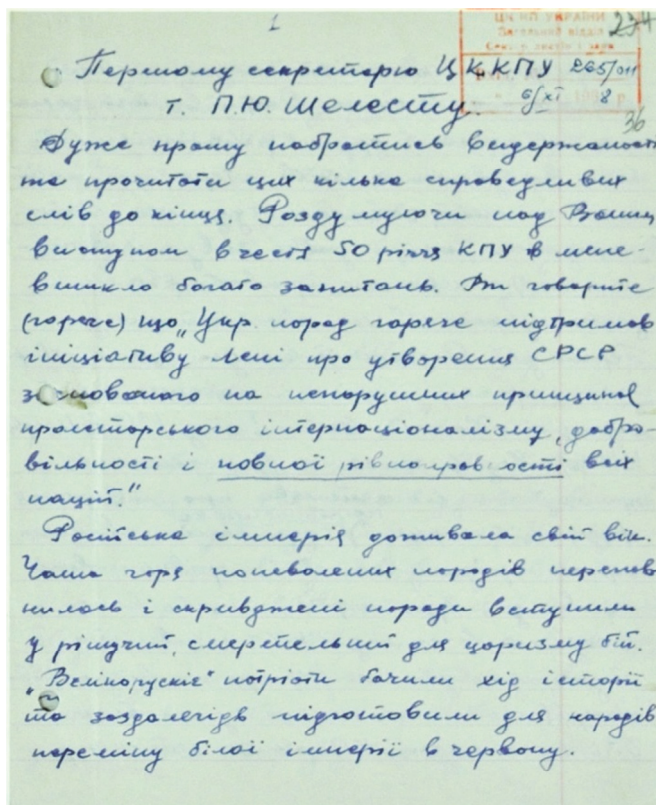 1
ЦК КП УКРАЇНИ
Загальний відділ
234
265/011
6/XI 8
36
Першому секретарю ЦК КПУ
т. П.Ю. Шелесту.
Дуже прошу набратись видержаності
та прочитати цих кілька справедливих
слів до кінця. Роздумуючи над Вашим
виступом в честь 50 річчя КПУ в мене
виникло багато запитань. Ви говорите
(гаряче) що „Укр. народ гаряче підтримав
ініціативу Лені про утворення СРСР
заснованого на непорушних принципах
пролетарського інтернаціоналізму, добро-
вільності і повної рівноправності всіх
націй."
Російська імперія доживала свій вік.
Чаша горя поневолених народів перепов
нилась і скривджені народи вступили
у рішучий, смертельний для царизму бій.
„Велікорускіє" патріоти бачили хід історії
та заздалегідь підготовили для народів
переміну білої імперії в червону.